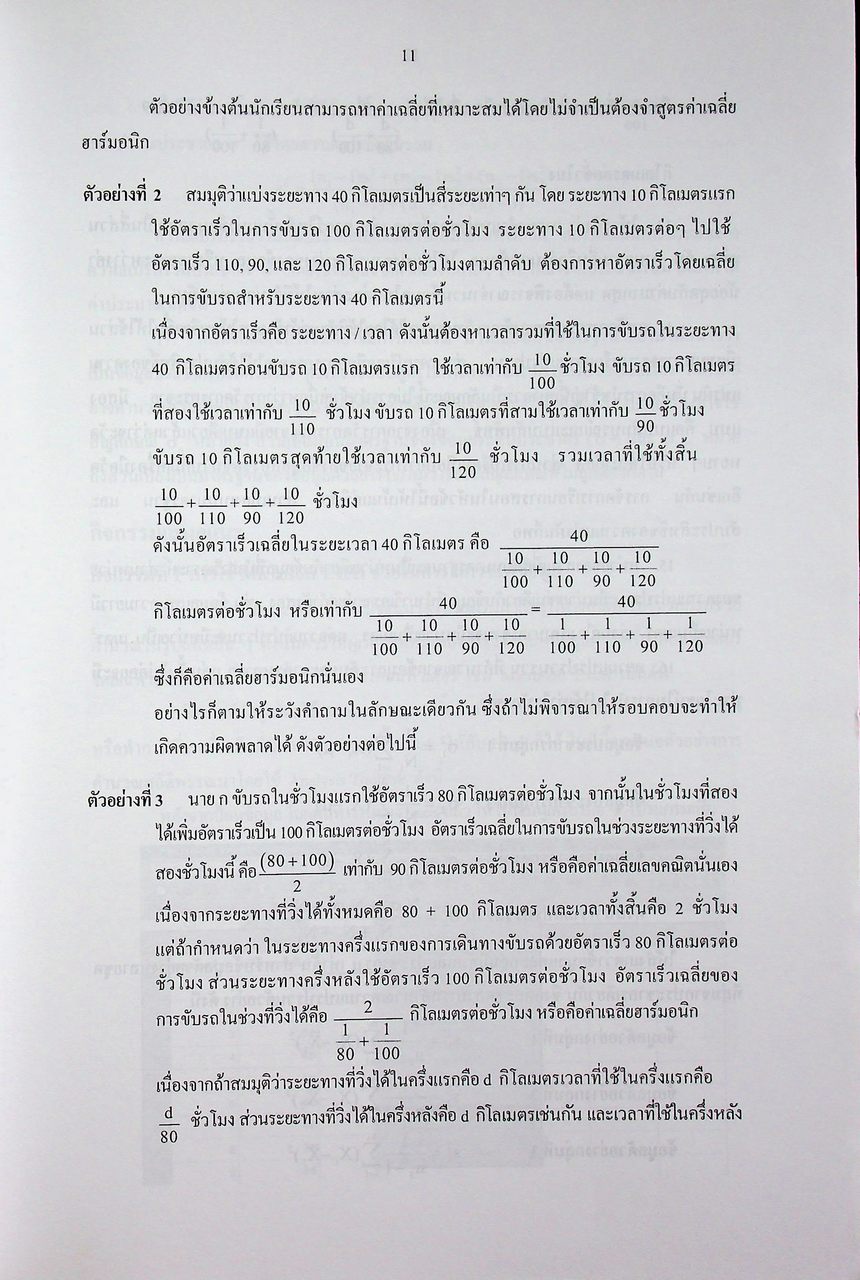 11
ตัวอย่างข้างต้นนักเรียนสามารถหาค่าเฉลี่ยที่เหมาะสมได้โดยไม่จำเป็นต้องจำสูตรค่าเฉลี่ย
ฮาร์มอนิก
ตัวอย่างที่ 2 สมมุติว่าแบ่งระยะทาง 40 กิโลเมตรเป็นสี่ระยะเท่าๆ กัน โดย ระยะทาง 10 กิโลเมตรแรก
ใช้อัตราเร็วในการขับรถ 100 กิโลเมตรต่อชั่วโมง ระยะทาง 10 กิโลเมตรต่อๆ ไปใช้
อัตราเร็ว 110, 90, และ 120 กิโลเมตรต่อชั่วโมงตามลำดับ ต้องการหาอัตราเร็วโดยเฉลี่ย
ในการขับรถสำหรับระยะทาง 40 กิโลเมตรนี้
เนื่องจากอัตราเร็วคือ ระยะทาง / เวลา ดังนั้นต้องหาเวลารวมที่ใช้ในการขับรถในระยะทาง
40 กิโลเมตรก่อนขับรถ 10 กิโลเมตรแรก ใช้เวลาเท่ากับ 10/100 ชั่วโมง ขับรถ 10 กิโลเมตร
ที่สองใช้เวลาเท่ากับ 10/110 ชั่วโมง ขับรถ 10 กิโลเมตรที่สามใช้เวลาเท่ากับ 10/90 ชั่วโมง
ขับรถ 10 กิโลเมตรสุดท้ายใช้เวลาเท่ากับ 10/120 ชั่วโมง รวมเวลาที่ใช้ทั้งสิ้น
10/100 + 10/110 + 10/90 + 10/120 ชั่วโมง
ดังนั้นอัตราเร็วเฉลี่ยในระยะเวลา 40 กิโลเมตร คือ 40/(10/100 + 10/110 + 10/90 + 10/120)
กิโลเมตรต่อชั่วโมง หรือเท่ากับ 40/(10/100 + 10/110 + 10/90 + 10/120) = 40/(1/100 + 1/110 + 1/90 + 1/120)
ซึ่งก็คือค่าเฉลี่ยฮาร์มอนิกนั่นเอง
อย่างไรก็ตามให้ระวังคำถามในลักษณะเดียวกัน ซึ่งถ้าไม่พิจารณาให้รอบคอบจะทำให้
เกิดความผิดพลาดได้ ดังตัวอย่างต่อไปนี้
ตัวอย่างที่ 3 นาย ก ขับรถในชั่วโมงแรกใช้อัตราเร็ว 80 กิโลเมตรต่อชั่วโมง จากนั้นในชั่วโมงที่สอง
ได้เพิ่มอัตราเร็วเป็น 100 กิโลเมตรต่อชั่วโมง อัตราเร็วเฉลี่ยในการขับรถในช่วงระยะทางที่วิ่งได้
สองชั่วโมงนี้ คือ (80+100)/2 เท่ากับ 90 กิโลเมตรต่อชั่วโมง หรือคือค่าเฉลี่ยเลขคณิตนั่นเอง
เนื่องจากระยะทางที่วิ่งได้ทั้งหมดคือ 80 + 100 กิโลเมตร และเวลาทั้งสิ้นคือ 2 ชั่วโมง
แต่ถ้ากำหนดว่า ในระยะทางครึ่งแรกของการเดินทางขับรถด้วยอัตราเร็ว 80 กิโลเมตรต่อ
ชั่วโมง ส่วนระยะทางครึ่งหลังใช้อัตราเร็ว 100 กิโลเมตรต่อชั่วโมง อัตราเร็วเฉลี่ยของ
การขับรถในช่วงที่วิ่งได้คือ 2/(1/80 + 1/100) กิโลเมตรต่อชั่วโมง หรือคือค่าเฉลี่ยฮาร์มอนิก
เนื่องจากถ้าสมมุติว่าระยะทางที่วิ่งได้ในครึ่งแรกคือ d กิโลเมตรเวลาที่ใช้ในครึ่งแรกคือ
d/80 ชั่วโมง ส่วนระยะทางที่วิ่งได้ในครึ่งหลังคือ d กิโลเมตรเช่นกัน และเวลาที่ใช้ในครึ่งหลัง